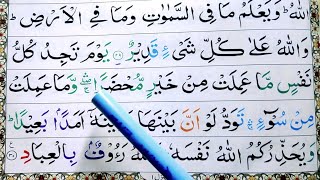 اللهُ ؕ وَيَعْلَمُ مَا فِى السَّمٰوٰتِ وَمَا فِى الْاَرْضِ ؕ
وَاللهُ عَلٰى كُلِّ شَىْءٍ قَدِيْرٌ ﴿۲۹﴾ يَوْمَ تَجِدُ كُلُّ
نَفْسٍ مَّا عَمِلَتْ مِنْ خَيْرٍ مُّحْضَرًا ۚۖ وَّمَا عَمِلَتْ
مِنْ سُوْٓءٍ ۚۛ تَوَدُّ لَوْ اَنَّ بَيْنَهَا وَبَيْنَهٗۤ اَمَدًاۢ بَعِيْدًا ؕ
وَيُحَذِّرُكُمُ اللهُ نَفْسَهٗ ؕ وَاللهُ رَءُوْفٌۢ بِالْعِبَادِ